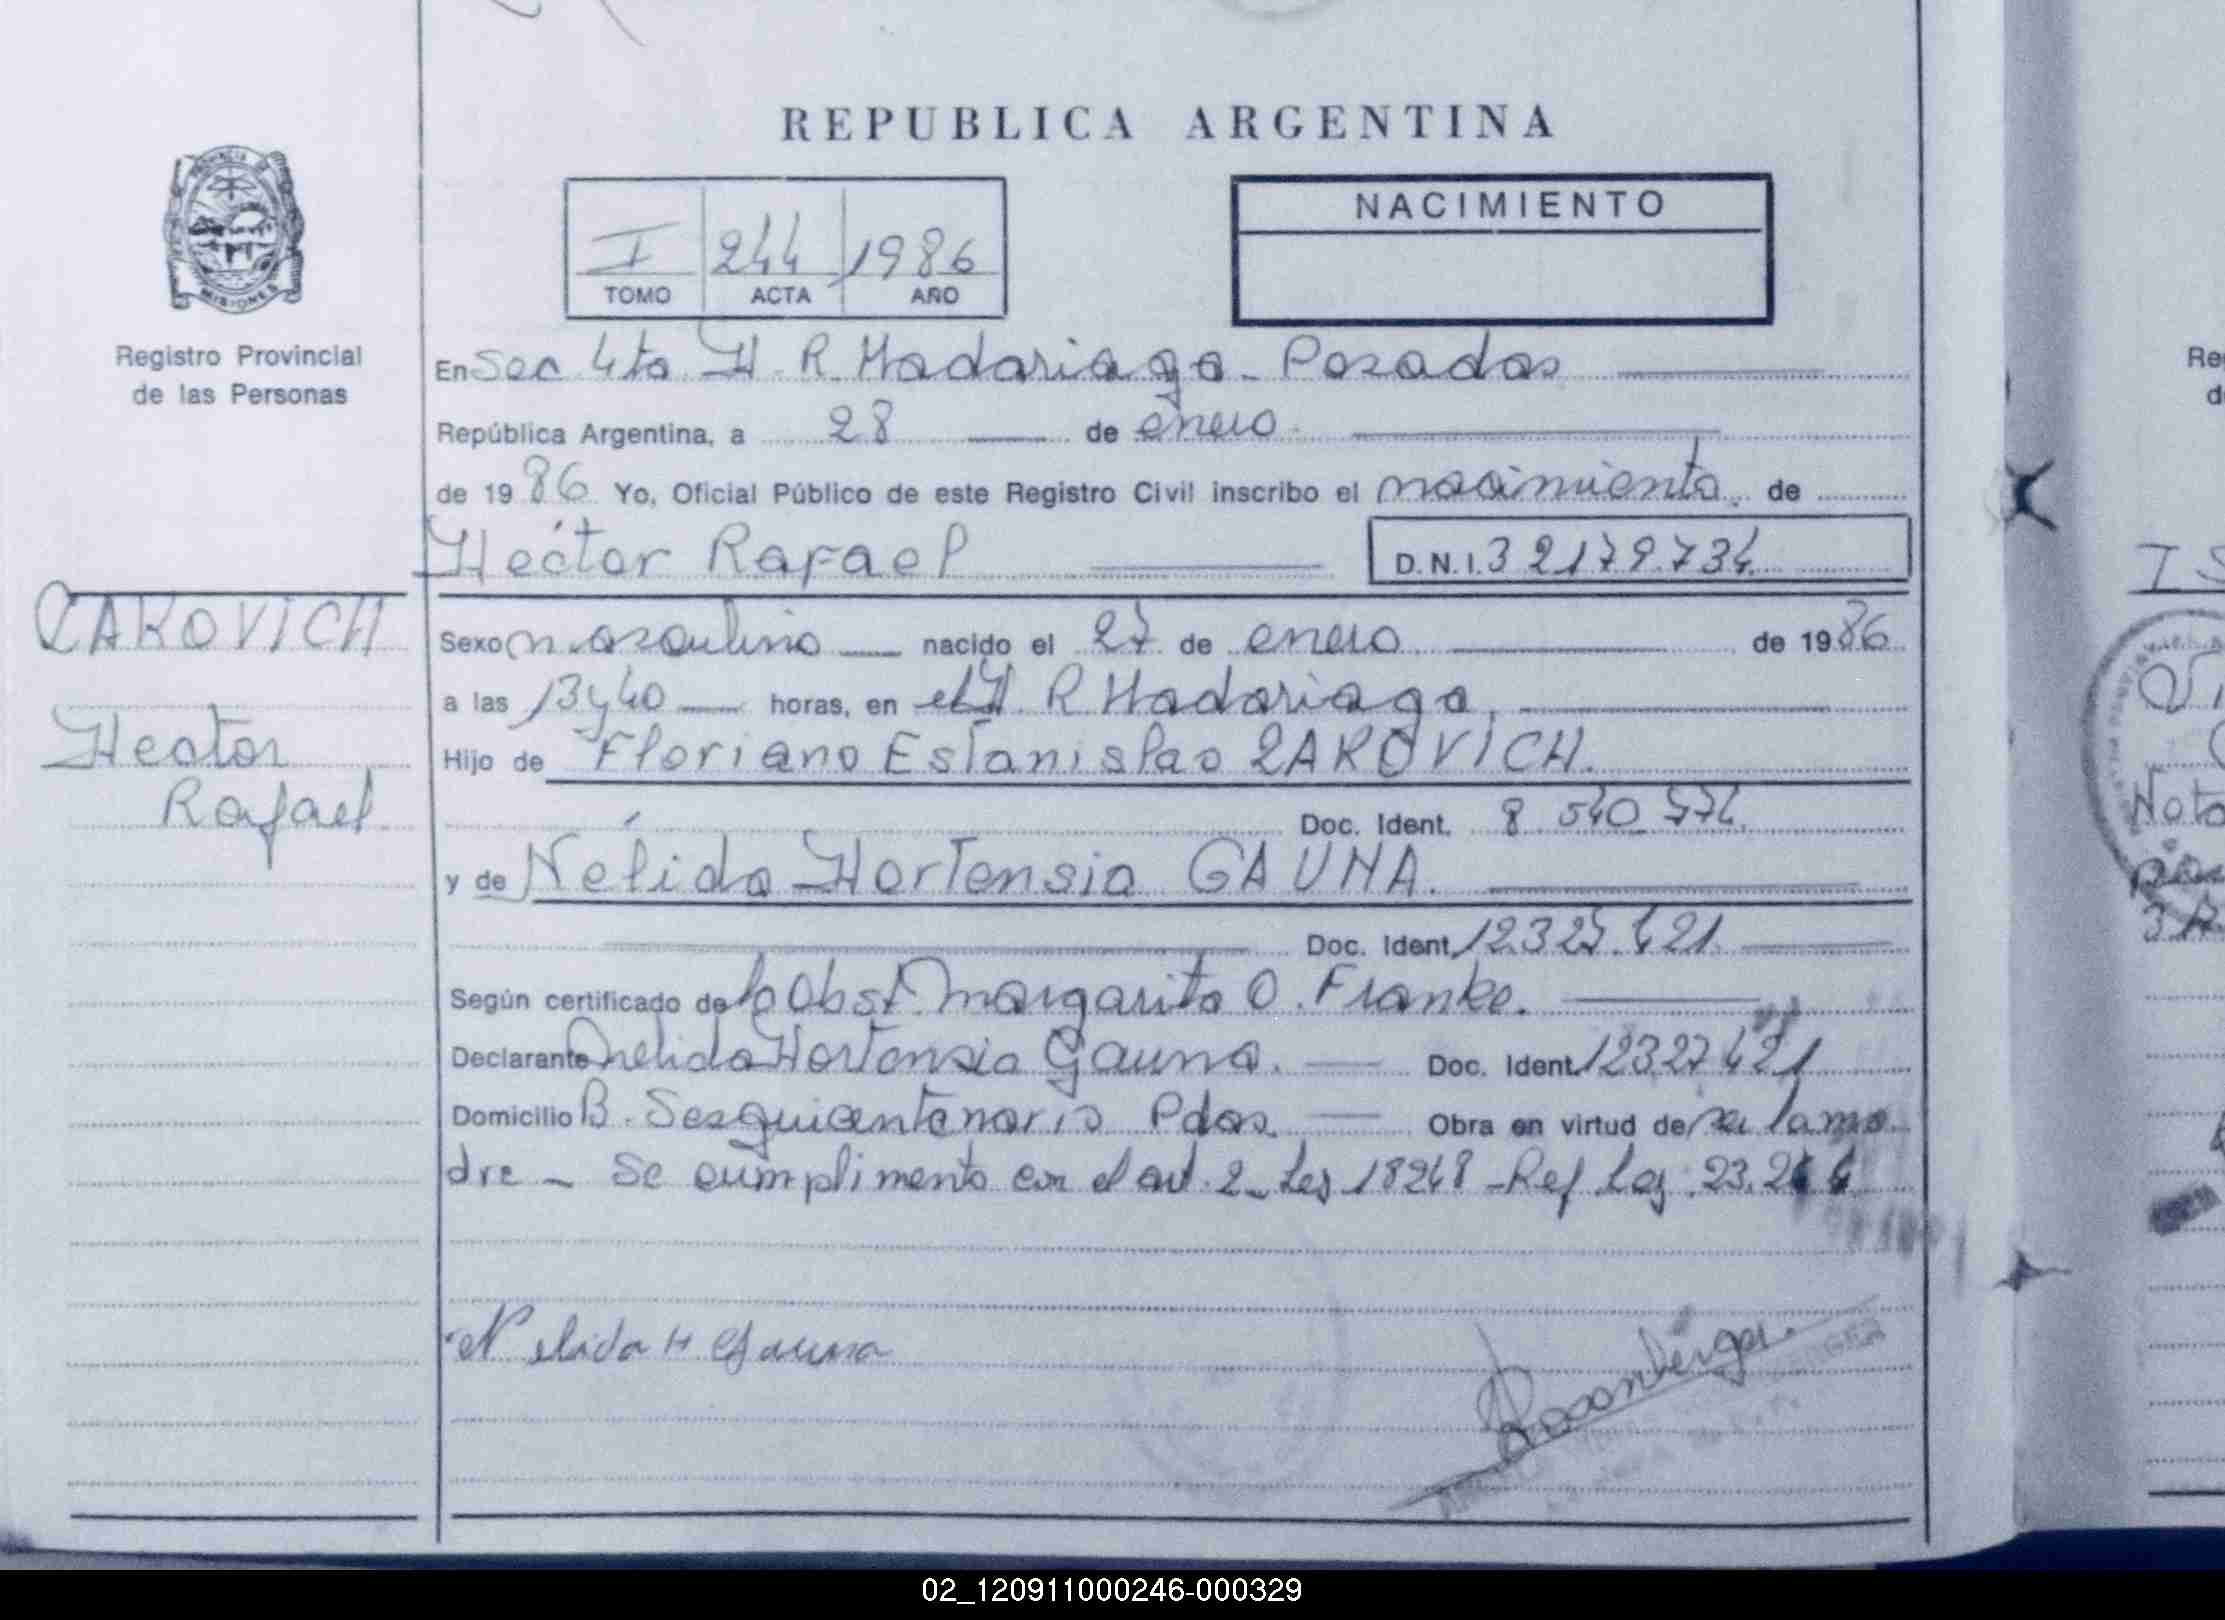 REPUBLICA ARGENTINA
PROVINCIA DE
MISIONES
Registro Provincial
de las Personas
I 244 1986
TOMO ACTA AÑO
NACIMIENTO
En Sec 4ta H. R. Madariaga - Posadas
República Argentina, a 28 de enero
de 1986 Yo, Oficial Público de este Registro Civil inscribo el nacimiento de
Héctor Rafael D.N.I. 32179.734
ZAKOVICH
Hector
Rafael
Sexo masculino nacido el 27 de enero de 1986
a las 13y40 horas, en el H. R Madariaga
Hijo de Floriano Estanislao ZAKOVICH.
Doc. Ident. 8 540 774
y de Nélida Hortensia GAUNA.
Doc. Ident. 12.327.421
Según certificado de la Obst. Margarita O. Franke.
Declarante Nelida Hortensia Gauna. Doc. Ident. 12327421
Domicilio B. Sesquicentenario Pdas. Obra en virtud de ser la ma
dre - Se cumplimento con el art. 2 - Ley 18248 - Ref Ley 23.264
Nelida H Gauna
02_120911000246-000329